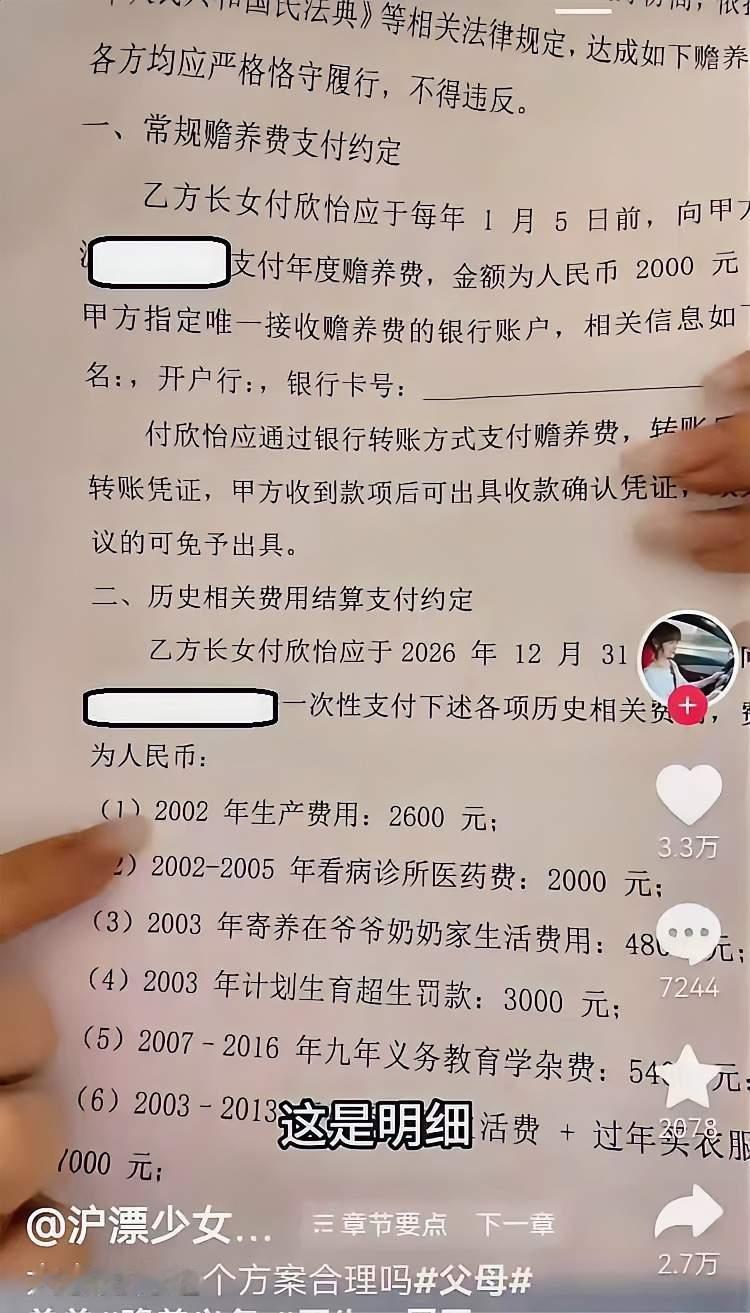 民法典》等相关法律规定，达成如下赡养
各方均应严格恪守履行，不得违反。
一、常规赡养费支付约定
乙方长女付欣怡应于每年 1 月 5 日前，向甲方
支付年度赡养费，金额为人民币 2000 元
甲方指定唯一接收赡养费的银行账户，相关信息如
名:，开户行:，银行卡号:
付欣怡应通过银行转账方式支付赡养费，转账
转账凭证，甲方收到款项后可出具收款确认凭证，
议的可免予出具。
二、历史相关费用结算支付约定
乙方长女付欣怡应于 2026 年 12 月 31
一次性支付下述各项历史相关费
为人民币:
（1）2002 年生产费用: 2600 元;
2）2002-2005 年看病诊所医药费: 2000 元;
（3）2003 年寄养在爷爷奶奶家生活费用: 480 元;
（4）2003 年计划生育超生罚款: 3000 元;
（5）2007－2016 年九年义务教育学杂费: 54 元;
（6）2003－2013 活费 + 过年买衣服
000 元;
这是明细
3.3万
7244
2078
2.7万
@沪漂少女...
章节要点 下一章
个方案合理吗#父母#